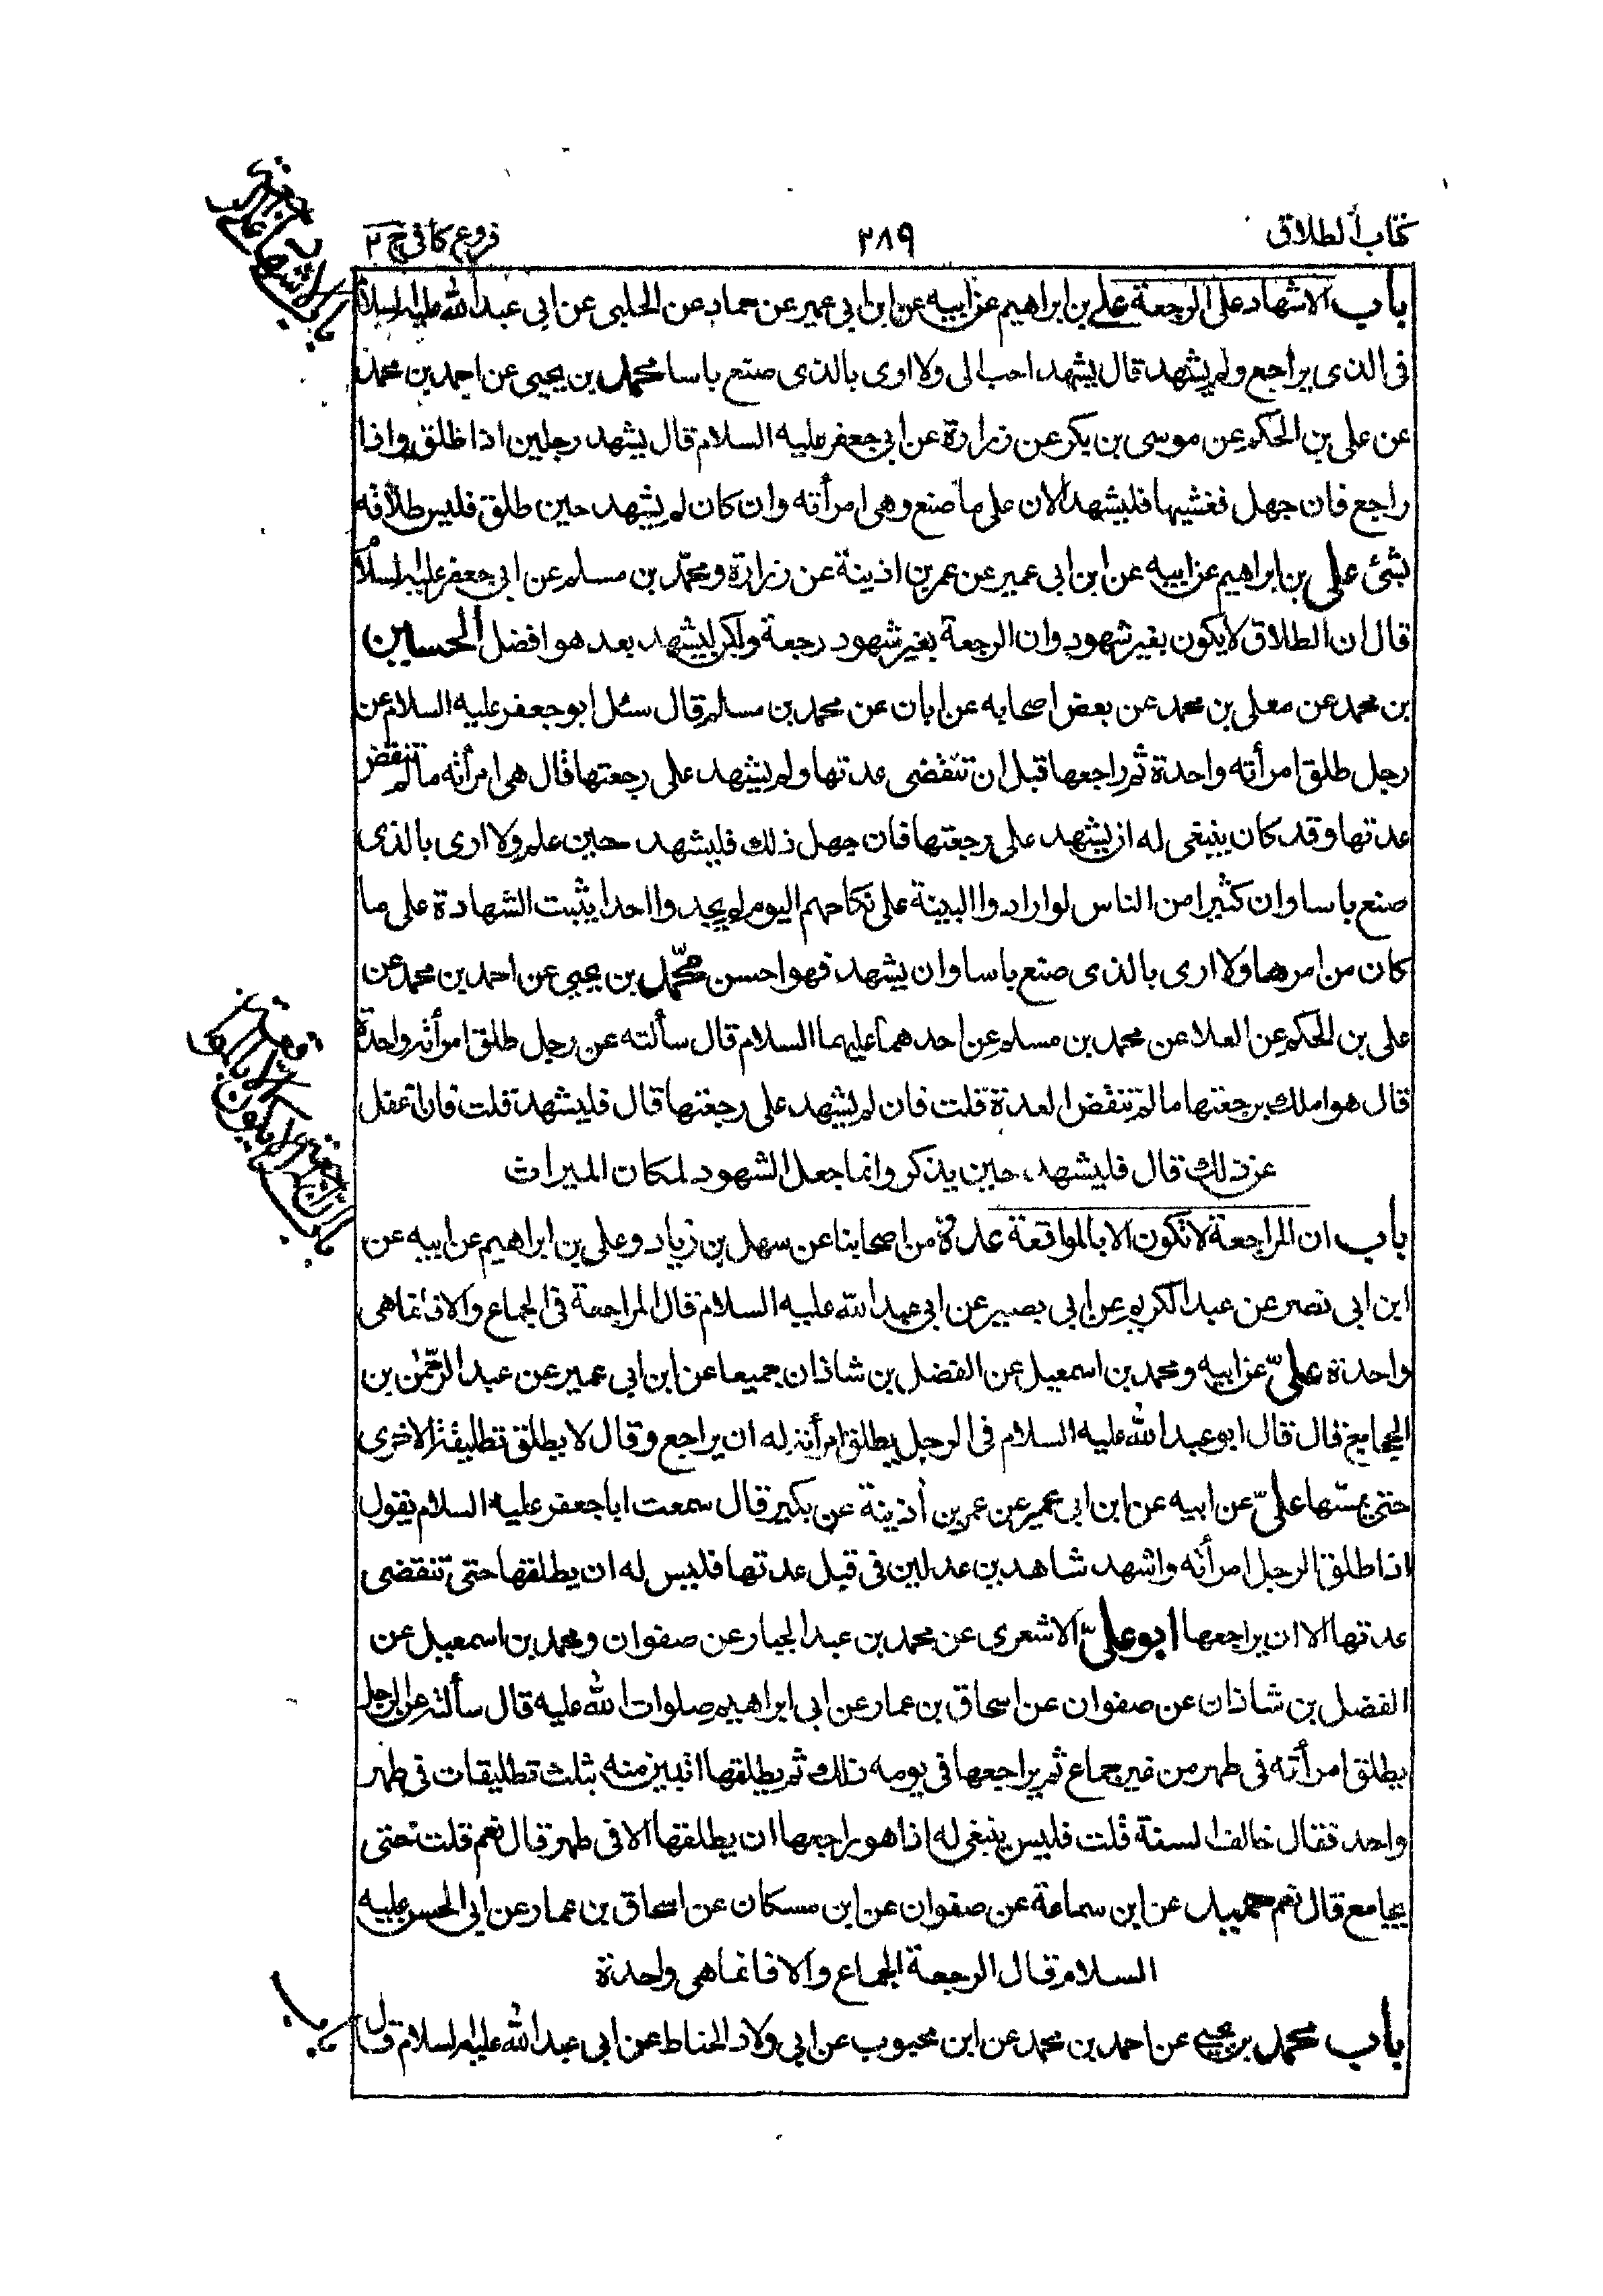 كتاب الطلاق
٢٨٩
فروع كافى ج ٢
باب الاشهاد على الرجعة على بن ابراهيم عن ابيه عن ابن ابى عمير عن حماد عن الحلبى عن ابى عبد الله عليه السلام
فى الذى يراجع ولم يشهد قال يشهد احب الى ولا ارى بالذى صنع باسا محمد بن يحيى عن احمد بن محمد
عن على بن الحكم عن موسى بن بكر عن زرارة عن ابى جعفر عليه السلام قال يشهد رجلين اذا طلق واذا
راجع فان جهل فغشيها فليشهد الان على ما صنع وهى امرأته وان كان لم يشهد حين طلق فليس طلاقه
بشئ على بن ابراهيم عن ابيه عن ابن ابى عمير عن عمر بن اذينة عن زرارة ومحمّد بن مسلم عن ابى جعفر عليه السلام
قال ان الطلاق لا يكون بغير شهود وان الرجعة بغير شهود رجعة ولكن ليشهد بعد هو افضل الحسين
بن محمد عن معلى بن محمد عن بعض اصحابه عن ابان عن محمد بن مسلم قال سئل ابو جعفر عليه السلام عن
رجل طلق امرأته واحدة ثم راجعها قبل ان تنقضى عدتها ولم يشهد على رجعتها قال هى امرأته ما لم تنقض
عدتها وقد كان ينبغى له ان يشهد على رجعتها فان جهل ذلك فليشهد حين علم ولا ارى بالذى
صنع باسا وان كثيرا من الناس لو ارادوا البينة على نكاحهم اليوم لم يجدوا احدا يثبت الشهادة على ما
كان من امرهما ولا ارى بالذى صنع باسا وان يشهد فهو احسن محمّد بن يحيى عن احمد بن محمد عن
على بن الحكم عن العلا عن محمد بن مسلم عن احدهما عليهما السلام قال سألته عن رجل طلق امرأته واحدة
قال هو املك برجعتها ما لم تنقض العدة قلت فان لم يشهد على رجعتها قال فليشهد قلت فان غفل
عن ذلك قال فليشهد حين يذكر وانما جعل الشهود لمكان الميراث
باب ان المراجعة لا تكون الا بالمواقعة عدة من اصحابنا عن سهل بن زياد وعلى بن ابراهيم عن ابيه عن
ابن ابى نصر عن عبد الكريم عن ابى بصير عن ابى عبد الله عليه السلام قال المراجعة فى الجماع والا فانما هى
واحدة علىّ عن ابيه ومحمد بن اسمعيل عن الفضل بن شاذان جميعا عن ابن ابى عمير عن عبد الرحمن بن
الحجامع قال قال ابو عبد الله عليه السلام فى الرجل يطلق امرأته له ان يراجع وقال لا يطلق تطليقة الاخرى
حتى يمسّها علىّ عن ابيه عن ابن ابى عمير عن عمر بن أذينة عن بكير قال سمعت ابا جعفر عليه السلام يقول
اذا طلق الرجل امرأته واشهد شاهدين عدلين فى قبل عدتها فليس له ان يطلقها حتى تنقضى
عدتها الا ان يراجعها ابو علىّ الاشعرى عن محمد بن عبد الجبار عن صفوان ومحمد بن اسمعيل عن
الفضل بن شاذان عن صفوان عن اسحاق بن عمار عن ابى ابراهيم صلوات الله عليه قال سألته عن الرجل
يطلق امرأته فى طهر من غير جماع ثم يراجعها فى يومه ذلك ثم يطلقها اتبين منه بثلث تطليقات فى طهر
واحد فقال خالف السنة قلت فليس ينبغى له اذا هو راجعها ان يطلقها الا فى طهر قال نعم قلت حتى
يجامع قال نعم حميد عن ابن سماعة عن صفوان عن ابن مسكان عن اسحاق بن عمار عن ابى الحسن عليه
السلام قال الرجعة الجماع والا فانما هى واحدة
باب محمد بن يحيى عن احمد بن محمد عن ابن محبوب عن ابى ولاد الحناط عن ابى عبد الله عليه السلام قال
باب